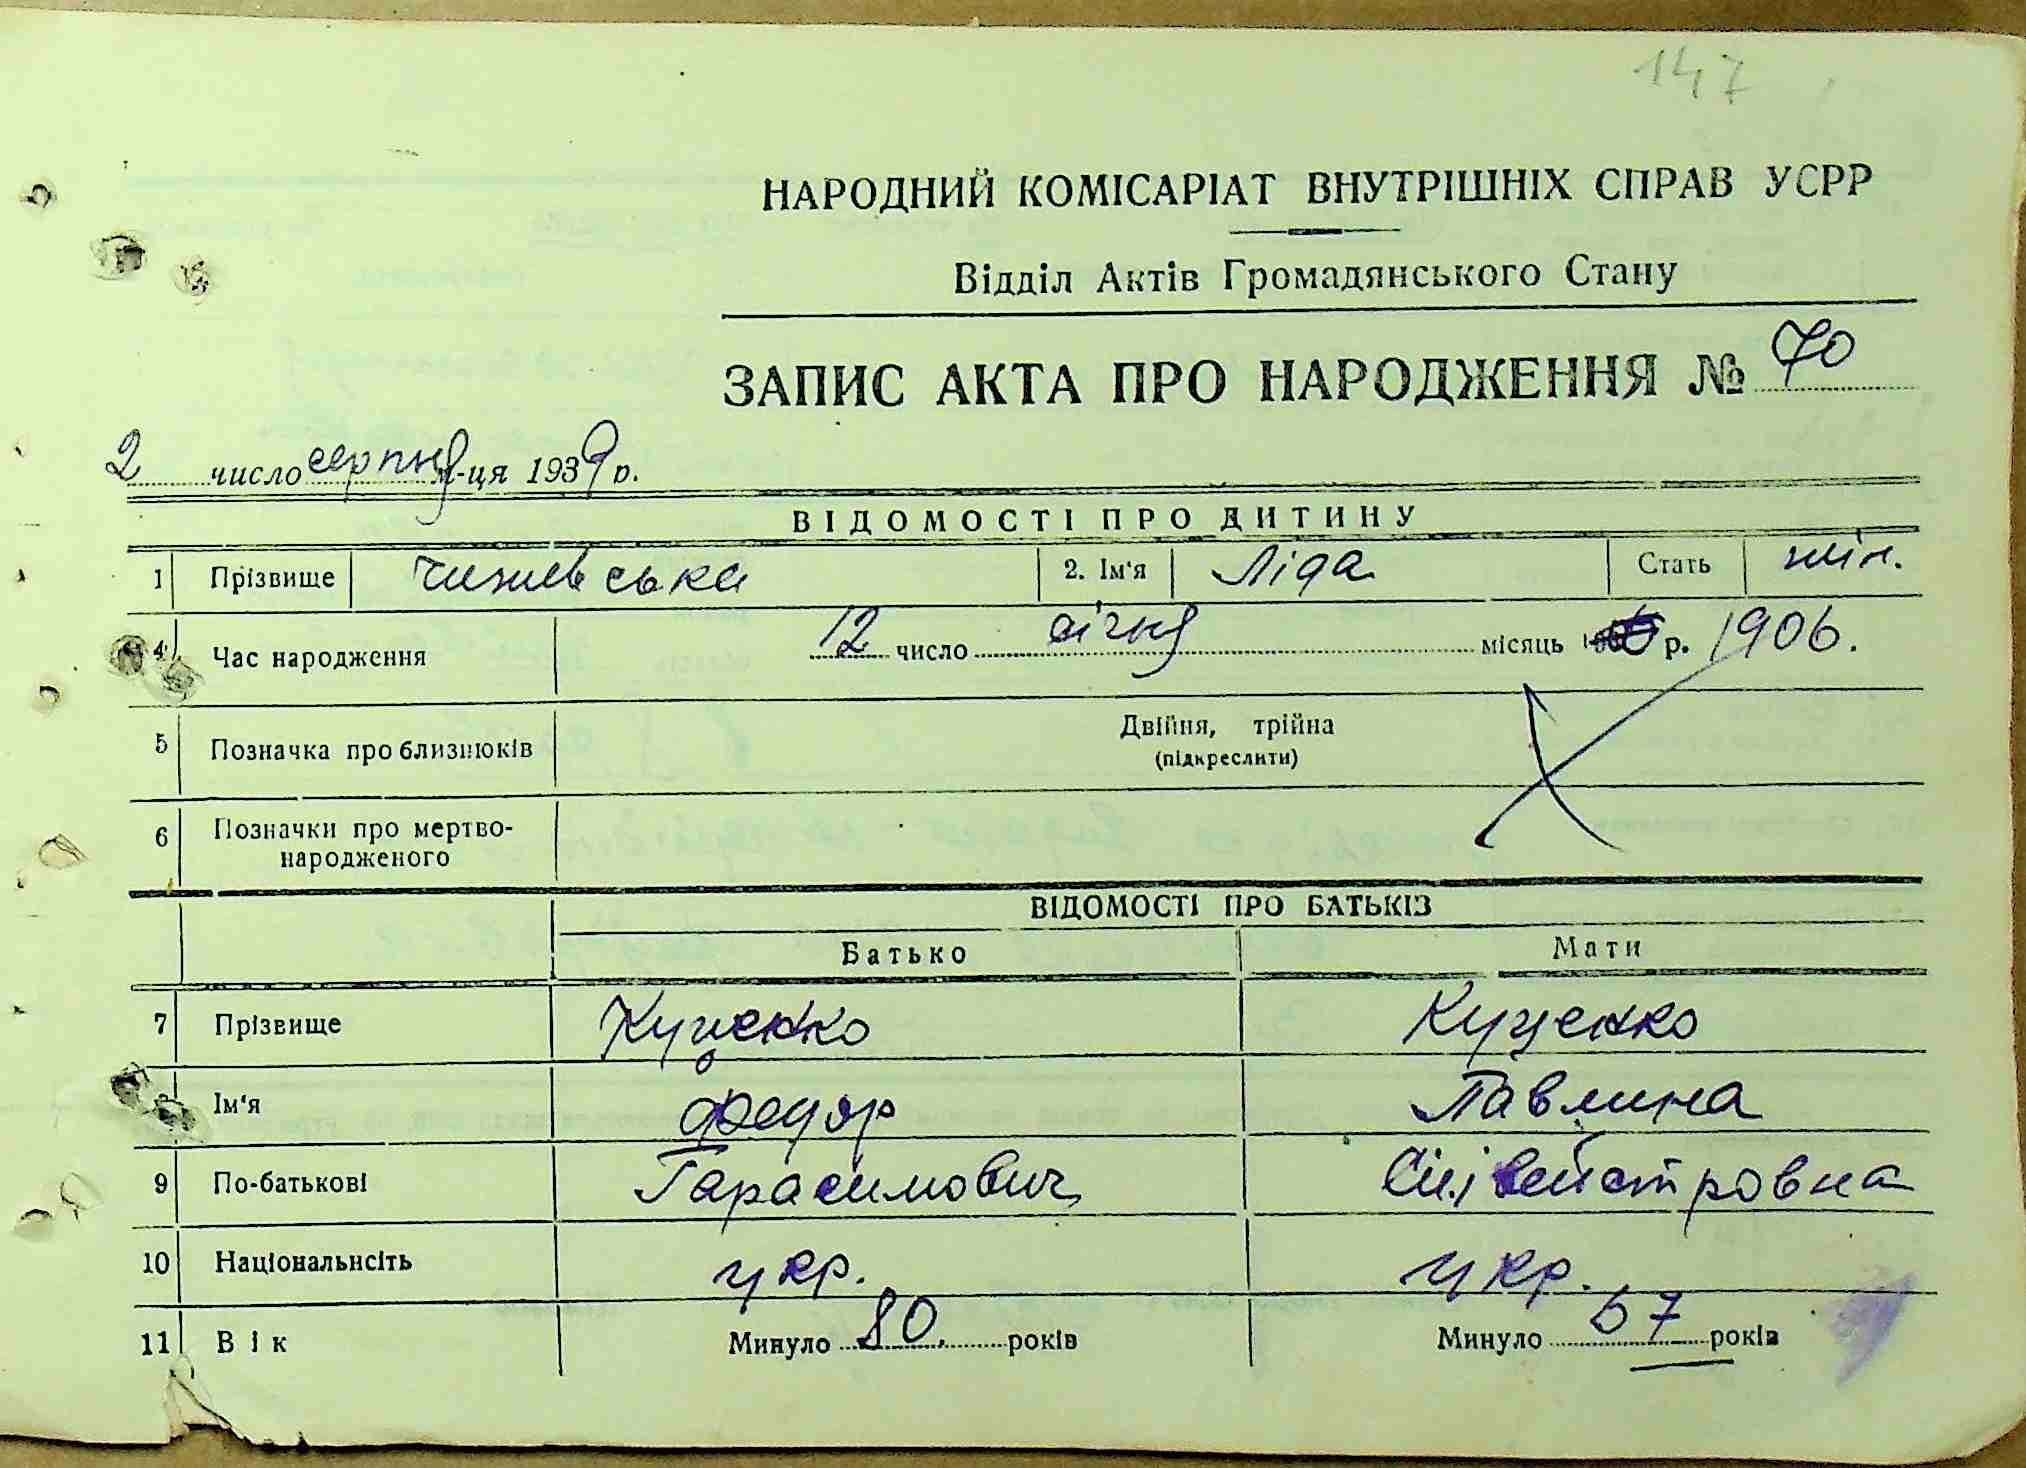 147
НАРОДНИЙ КОМІСАРІАТ ВНУТРІШНІХ СПРАВ УСРР
Відділ Актів Громадянського Стану
ЗАПИС АКТА ПРО НАРОДЖЕННЯ № 70
2 число серпня м-ця 1939 р.
ВІДОМОСТІ ПРО ДИТИНУ
1 Прізвище Чижевська 2. Ім'я Ліда Стать жін.
4 Час народження 12 число січня місяць р. 1906.
5 Позначка про близнюків Двійня, трійна
(підкреслити)
6 Позначки про мертво-
народженого
ВІДОМОСТІ ПРО БАТЬКІЗ
Батько Мати
7 Прізвище Куценко Куценко
Ім'я Федор Павлина
9 По-батькові Гарасимович Сильвейстровна
10 Національнсіть укр. укр.
11 Вік Минуло 80. років Минуло 67 років